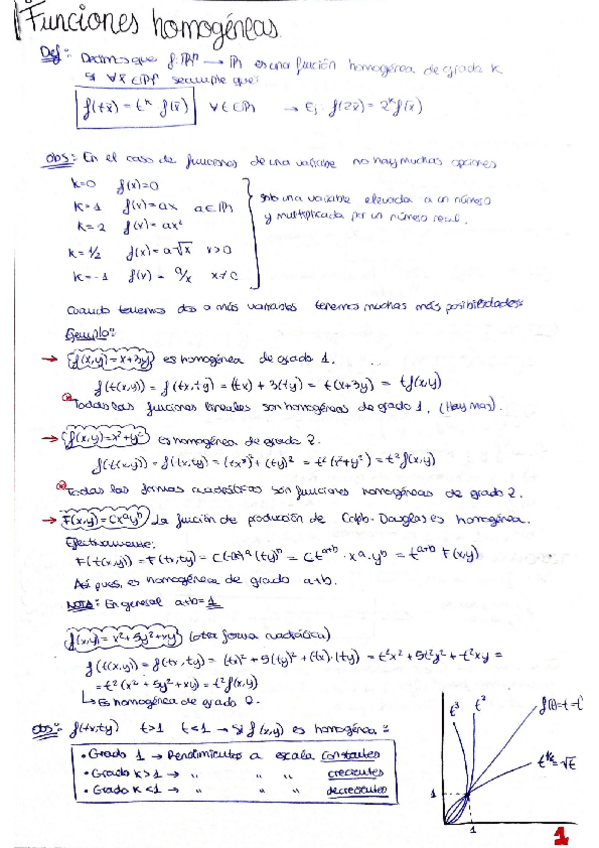 Funciones homogéneas.
Def: Decimos que f: ℝⁿ → ℝ es una función homogénea de grado K
si ∀x̄ ∈ ℝⁿ se cumple que:
f(tx̄) = tᴷ f(x̄) ∀t ∈ ℝ → Ej: f(2x̄) = 2ᴷ f(x̄)
obs: En el caso de funciones de una variable no hay muchas opciones
K=0 f(x)=0
K=1 f(x)=ax a∈ℝ
K=2 f(x)=ax²
K=1/2 f(x)=a√x x>0
K=-1 f(x)=a/x x≠0
solo una variable elevada a un número
y multiplicada por un número real.
Cuando tenemos dos o más variables tenemos muchas más posibilidades:
Ejemplo:
→ f(x,y)=x+3y es homogénea de grado 1.
f(t(x,y)) = f(tx,ty) = (tx)+3(ty) = t(x+3y) = tf(x,y)
Todas las funciones lineales son homogéneas de grado 1. (Hay más).
→ f(x,y)=x²+y² es homogénea de grado 2.
f(t(x,y)) = f(tx,ty) = (tx)²+(ty)² = t²(x²+y²) = t²f(x,y)
Todas las formas cuadráticas son funciones homogéneas de grado 2.
→ F(x,y)=Cxᵃyᵇ La función de producción de Cobb-Douglas es homogénea.
Efectivamente:
F(t(x,y)) = F(tx,ty) = C(tx)ᵃ(ty)ᵇ = Ctᵃ⁺ᵇ·xᵃ·yᵇ = tᵃ⁺ᵇ F(x,y)
Así pues, es homogénea de grado a+b.
NOTA: En general a+b=1
f(x,y)=x²+5y²+xy (otra forma cuadrática)
f(t(x,y)) = f(tx,ty) = (tx)²+5(ty)²+(tx)·(ty) = t²x²+5t²y²+t²xy =
= t²(x²+5y²+xy) = t²f(x,y)
↳ Es homogénea de grado 2.
obs: f(tx,ty) t>1 t<1 → Si f(x,y) es homogénea:
• Grado 1 → Rendimientos a escala constantes
• Grado K>1 → " " " crecientes
• Grado K<1 → " " " decrecientes
t³ t² f(t)=t=t¹
t^½=√t
1
1
1